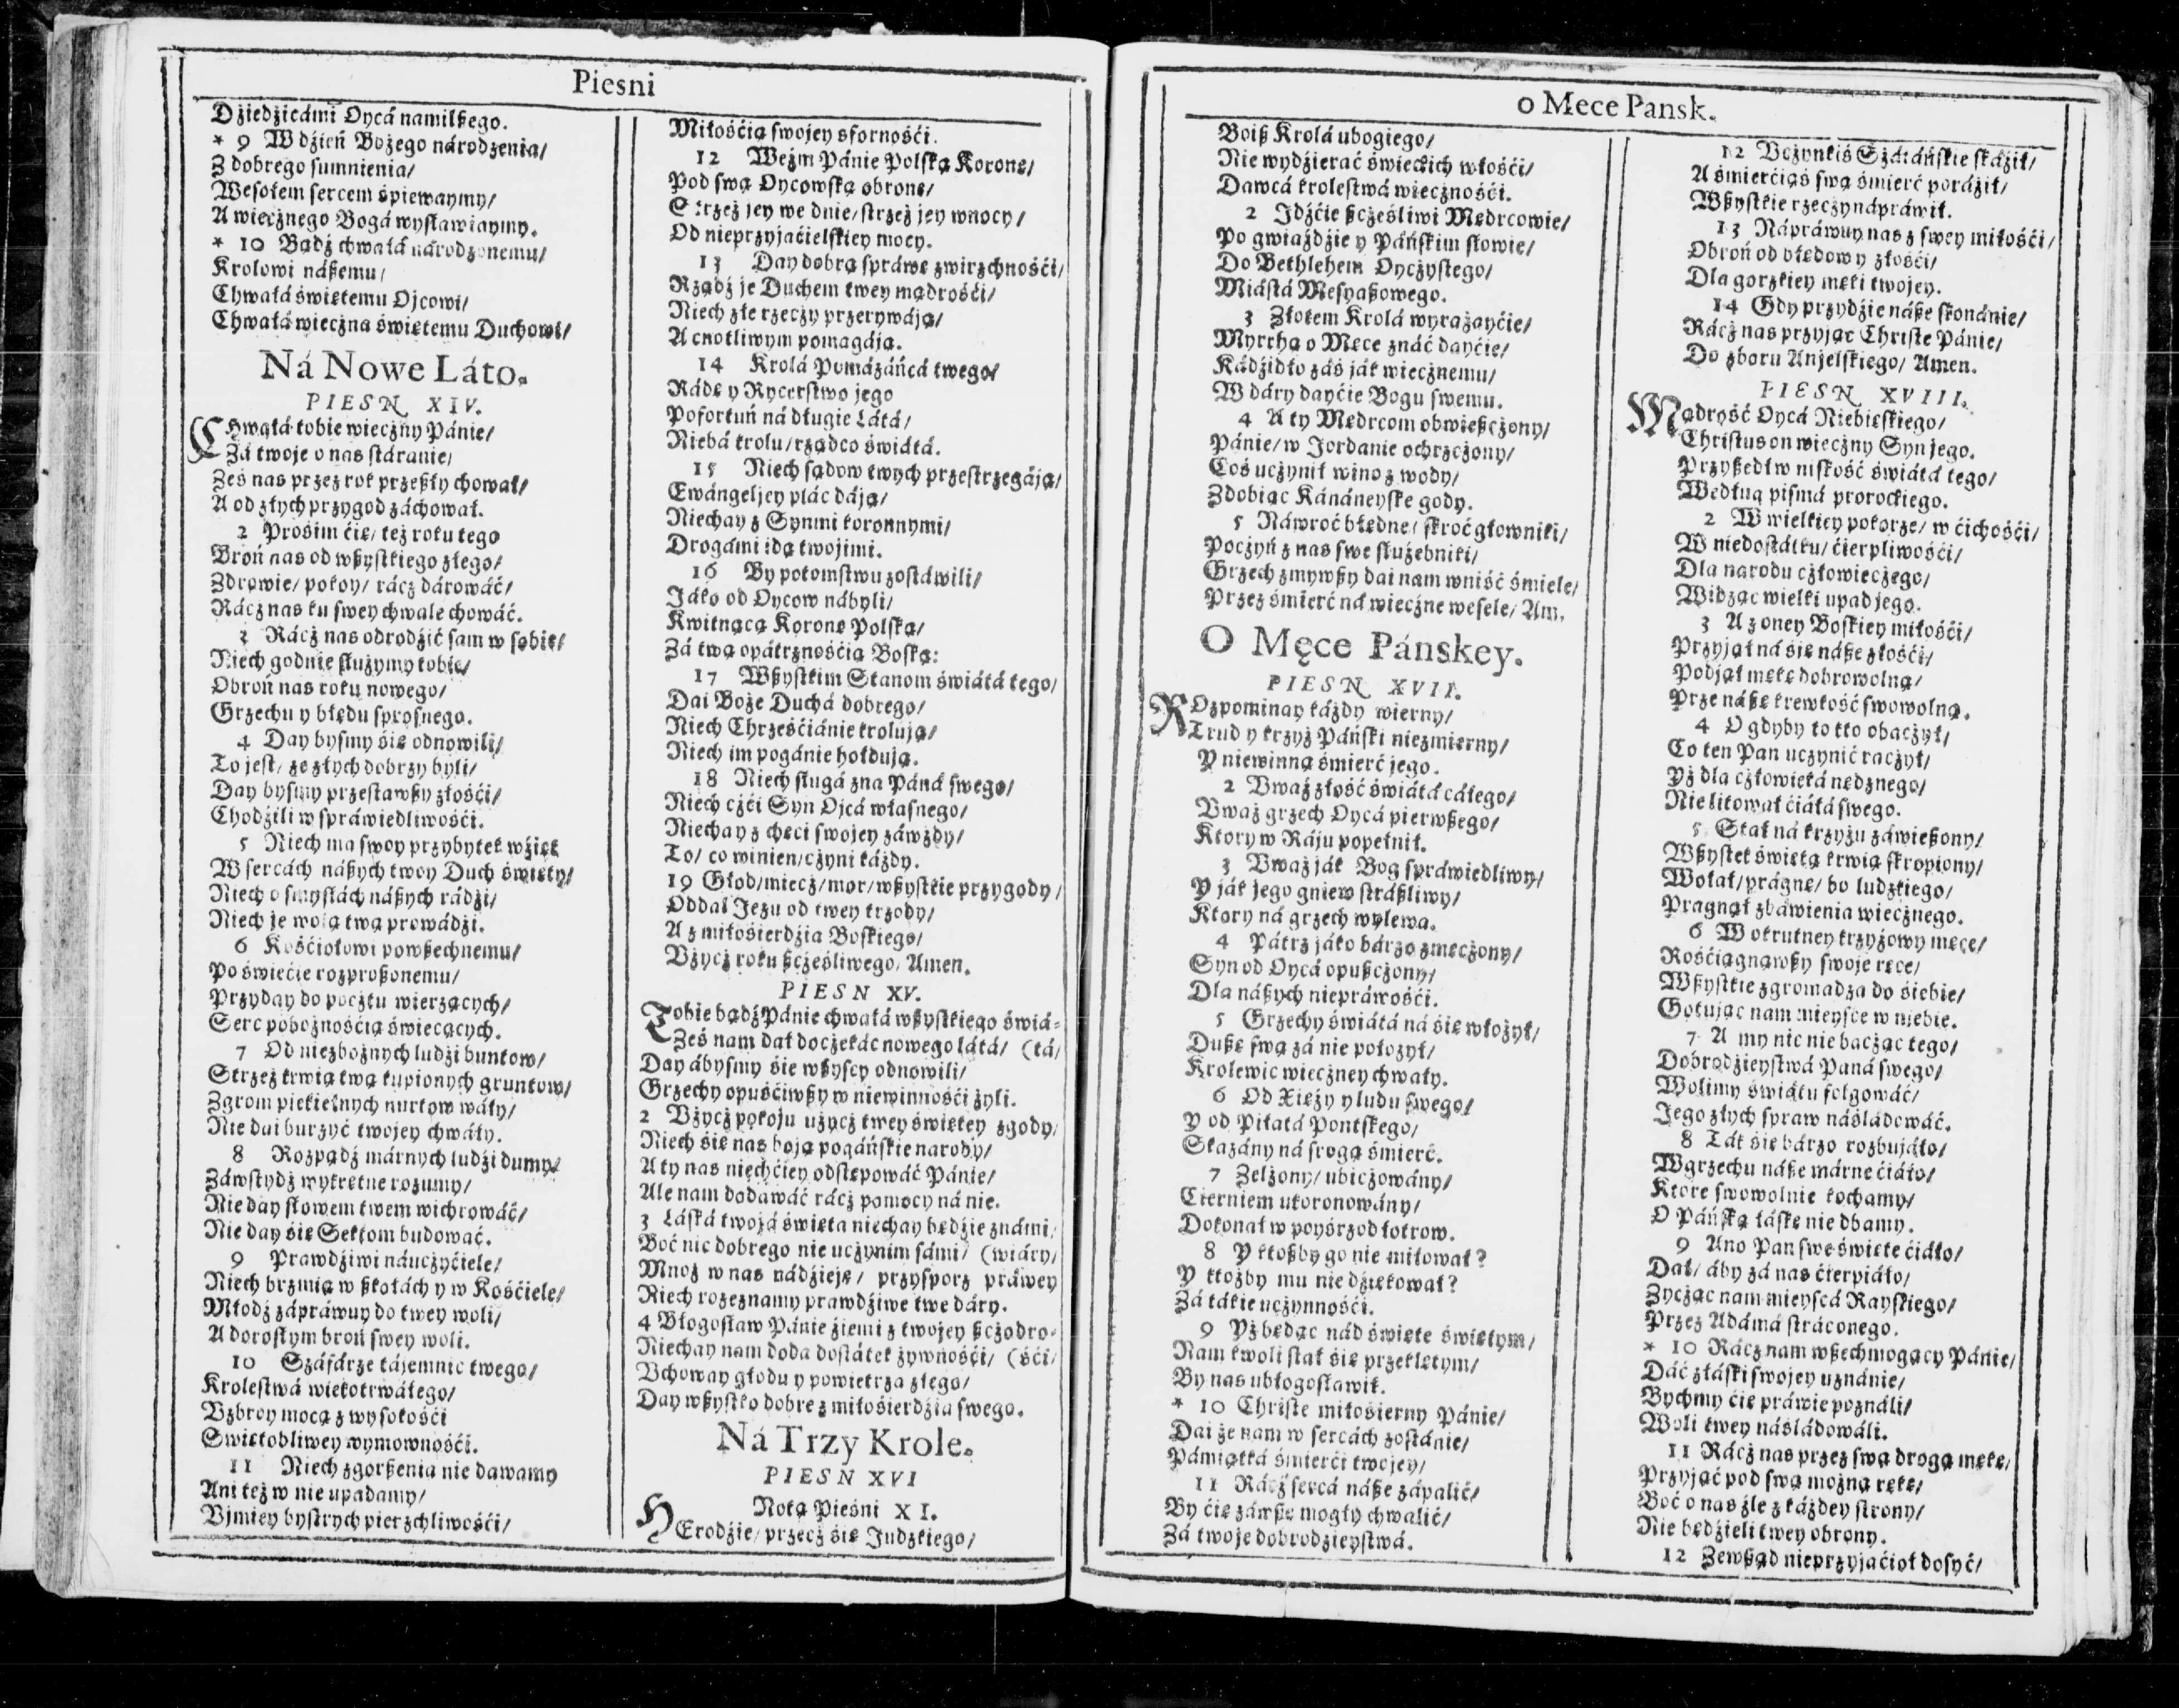 Piesni
Dźiedźicámi Oycá namilßego.
* 9 W dźień Bożego národzenia/
Z dobrego sumnienia/
Wesołem sercem śpiewaymy/
A wiecżnego Bogá wysławiaymy.
* 10 Bądź chwałá národzonemu/
Krolowi náßemu/
Chwałá świętemu Ojcowi/
Chwałá wiecżna świętemu Duchowi/
Ná Nowe Láto.
PIESN XIV.
CHwałá tobie wiecżny Pánie/
Zá twoje o nas stáranie/
Ześ nas przez rok przeßły chował/
A od złych przygod záchował.
2 Prosim ćię/ też roku tego
Broń nas od wßystkiego złego/
Zdrowie/ pokoy/ rácz dárowáć/
Rácż nas ku swey chwale chowáć.
3 Rácż nas odrodźić sam w sobie/
Niech godnie służymy tobie/
Obroń nas roku nowego/
Grzechu y błędu sprosnego.
4 Day bysmy śię odnowili/
To jest/ ze złych dobrzy byli/
Day bysmy przestawßy złośći/
Chodźili w spráwiedliwośći.
5 Niech ma swoy przybytek wźięt
W sercách náßych twoy Duch święty/
Niech o smysłách náßych rádźi/
Niech je wola twa prowádźi.
6 Kośćiołowi powßechnemu/
Po świećie rozproßonemu/
Przyday do pocżtu wierzących/
Serc pobożnośćią świecących.
7 Od niezbożnych ludźi buntow/
Strzeż krwią twą kupionych gruntow/
Zgrom piekielnych nurtow wáły/
Nie dai burzyć twojey chwáły.
8 Rozpądź márnych ludźi dumy/
Záwstydź wykrętne rozumy/
Nie day słowem twem wichrowáć/
Nie day śię Sektom budować.
9 Prawdźiwi náucżyćiele/
Niech brzmią w ßkołách y w Kośćiele/
Młodź zápráwuy do twey woli/
A dorosłym broń swey woli.
10 Száfárze tájemnic twego/
Krolestwá wiekotrwáłego/
Uzbroy mocą z wysokośći
Swiętobliwey wymownośći.
11 Niech zgorßenia nie dawamy
Ani też w nie upadamy/
Ujmiey bystrych pierzchliwośći/
Miłośćią swojey sfornośći.
12 Weźm Pánie Polską Koronę/
Pod swą Oycowską obronę/
Strzeż jey we dnie/ strzeż jey w nocy/
Od nieprzyjaćielskiey mocy.
13 Day dobrą spráwę zwirzchnośći/
Rządź je Duchem twey mądrośći/
Niech złe rzeczy przerywáją/
A cnotliwym pomagáją.
14 Krolá Pomázáńcá twego/
Rádę y Rycerstwo jego
Pofortuń ná długie Látá/
Niebá krolu/ rządco świátá.
15 Niech sądow twych przestrzegáją/
Ewángeljey plác dáją/
Niechay z Synmi koronnymi/
Drogámi idą twojimi.
16 By potomstwu zostáwili/
Jáko od Oycow nábyli/
Kwitnącą Koronę Polską/
Zá twą opátrznośćią Boską:
17 Wßystkim Stanom świátá tego/
Dai Boże Duchá dobrego/
Niech Chrześćiánie krolują/
Niech im pogánie hołdują.
18 Niech sługá zna Páná swego/
Niech cżći Syn Ojcá własnego/
Niechay z chęci swojey záwżdy/
To/ co winien/ cżyni káżdy.
19 Głod/ miecż/ mor/ wßystkie przygody/
Oddal Jezu od twey trzody/
A z miłośierdźia Boskiego/
Użycż roku ßcżęśliwego/ Amen.
PIESN XV.
Tobie bądź Pánie chwałá wßystkiego świá-
Ześ nam dał docżekác nowego látá/ (tá/
Day ábysmy śię wßyscy odnowili/
Grzechy opuśćiwßy w niewinnośći żyli.
2 Użycż pokoju użycż twey świętey zgody/
Niech śię nas boją pogáńskie narody/
A ty nas niechćiey odstępowáć Pánie/
Ale nam dodawáć rácż pomocy ná nie.
3 Láská twojá święta niechay będźie známi/
Boć nic dobrego nie ucżynim sámi/ (wiáry/
Mnoż w nas nádźieję/ przysporz práwey
Niech rozeznamy prawdźiwe twe dáry.
4 Błogosław Pánie źiemi z twojey ßcżodro-
Niechay nam doda dostátek żywnośći/ (śći/
Uchoway głodu y powietrza złego/
Day wßystko dobre z miłośierdźia swego.
Ná Trzy Krole.
PIESN XVI
Notą Pieśni XI.
HErodźie/ przecż śię Judzkiego/
o Mece Pansk.
Boiß Krolá ubogiego/
Nie wydźierać świeckich włośći/
Dawcá krolestwá wiecżnośći.
2 Jdźćie ßcżęśliwi Mędrcowie/
Po gwiaździe y Páńskim słowie/
Do Bethlehem Oycżystego/
Miástá Mesyaßowego.
3 Złotem Krolá wyrażayćie/
Myrrhą o Męce znáć dayćie/
Kádźidło záś ják wiecżnemu/
W dáry dayćie Bogu swemu.
4 A ty Mędrcom obwießcżony/
Pánie/ w Jordanie ochrzcżony/
Coś ucżynił wino z wody/
Zdobiąc Kánáneyskie gody.
5 Náwroć błędne/ skroć głowniki/
Pocżyń z nas swe służebniki/
Grzech zmywßy dai nam wniść śmiele/
Przez śmierć ná wiecżne wesele/ Am.
O Męce Pánskey.
PIESN XVII.
ROzpominay káżdy wierny/
Trud y krzyż Páński niezmierny/
Y niewinną śmierć jego.
2 Uważ złość świátá cáłego/
Uważ grzech Oycá pierwßego/
Ktory w Ráju popełnił.
3 Uważ ják Bog spráwiedliwy/
Y ják jego gniew stráßliwy/
Ktory ná grzech wylewa.
4 Pátrz jáko bárzo zmęcżony/
Syn od Oycá opußcżony/
Dla náßych niepráwośći.
5 Grzechy świátá ná śię włożył/
Dußę swą zá nie położył/
Krolewic wiecżney chwały.
6 Od Xięży y ludu swego/
Y od Piłatá Pontskego/
Skazány ná srogą śmierć.
7 Zelżony/ ubicżowány/
Cierniem ukoronowány/
Dokonał w poysrzod łotrow.
8 Y ktoßby go nie miłował?
Y ktożby mu nie dźiękował?
Zá tákie ucżynnośći.
9 Yż będąc nád święte świętym/
Nam kwoli stał śię przeklętym/
By nas ubłogosławił.
* 10 Christe miłośierny Pánie/
Dai że nam w sercách zostánie/
Pámiątká śmierći twojey/
11 Rácż sercá náße zápalić/
By ćię záwße mogły chwalić/
Zá twoje dobrodzieystwá.
12 Ucżynkiś Szátáńskie skáźił/
A śmierćiąś swą śmierć poráźił/
Wßystkie rzecży nápráwił.
13 Nápráwuy nas z swey miłośći/
Obroń od błędow y złośći/
Dla gorzkiey męki twojey.
14 Gdy przydźie náße skonánie/
Rácż nas przyjąc Christe Pánie/
Do zboru Anjelskiego/ Amen.
PIESN XVIII.
Mądrość Oycá Niebieskiego/
Christus on wiecżny Syn jego.
Przyßedł w niskość świátá tego/
Według pismá prorockiego.
2 W wielkiey pokorze/ w ćichośći/
W niedostátku/ ćierpliwośći/
Dla narodu cżłowiecżego/
Widząc wielki upad jego.
3 A z oney Boskiey miłośći/
Przyjął ná śię náße złośći/
Podjął mękę dobrowolną/
Prze náßę krewkość swowolną.
4 O gdyby to kto obacżył/
Co ten Pan ucżynić racżył/
Yż dla cżłowieká nędznego/
Nie litował ćiáłá swego.
5 Stał ná krzyżu záwießony/
Wßystek świętą krwią skropiony/
Wołał/ prágnę/ bo ludzkiego/
Pragnął zbáwienia wiecżnego.
6 W okrutney krzyżowy męce/
Rośćiągnąwßy swoje ręce/
Wßystkie zgromadza do śiebie/
Gotując nam mieysce w niebie.
7 A my nic nie bacżąc tego/
Dobrodźieystwá Paná swego/
Wolimy świátu folgowáć/
Jego złych spraw náśladowáć.
8 Ták śię bárzo rozbujáło/
W grzechu náße márne ćiáło/
Ktore swowolnie kochamy/
O Páńską łáskę nie dbamy.
9 Ano Pan swe święte ćiáło/
Dał/ áby zá nas ćierpiáło/
Zycżąc nam mieyscá Rayskiego/
Przez Adámá stráconego.
* 10 Rácż nam wßechmogący Pánie/
Dáć z łáski swojey uznánie/
Bychmy ćię práwie poználi/
Woli twey násládowáli.
11 Rácż nas przez swą drogą mękę/
Przyjąć pod swą możną rękę/
Boć o nas źle z káżdey strony/
Nie będźieli twey obrony.
12 Zewßąd nieprzyjaćioł dosyć/